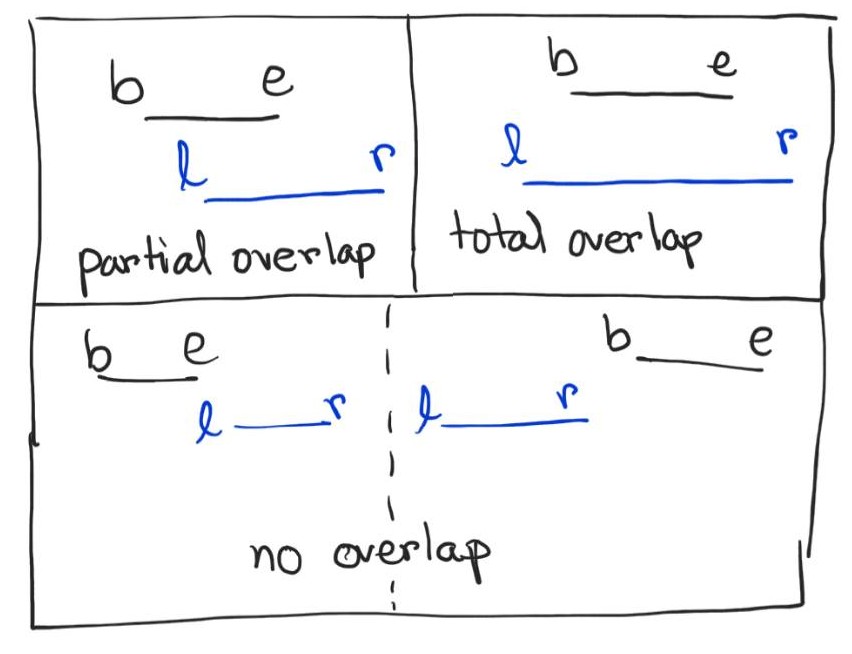 b e
l r
partial overlap
b e
l r
total overlap
b e
l r
b e
l r
no overlap